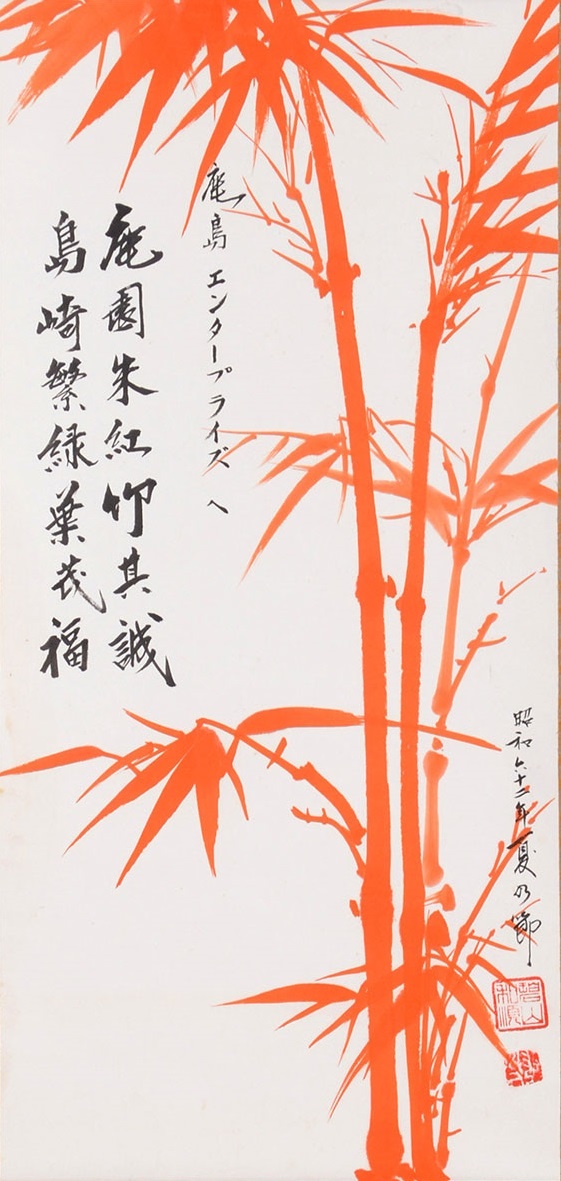 鹿島 エンタープライズ へ
鹿園朱紅竹其誠
島崎繁緑葉茂福
昭和六十二年夏乃節